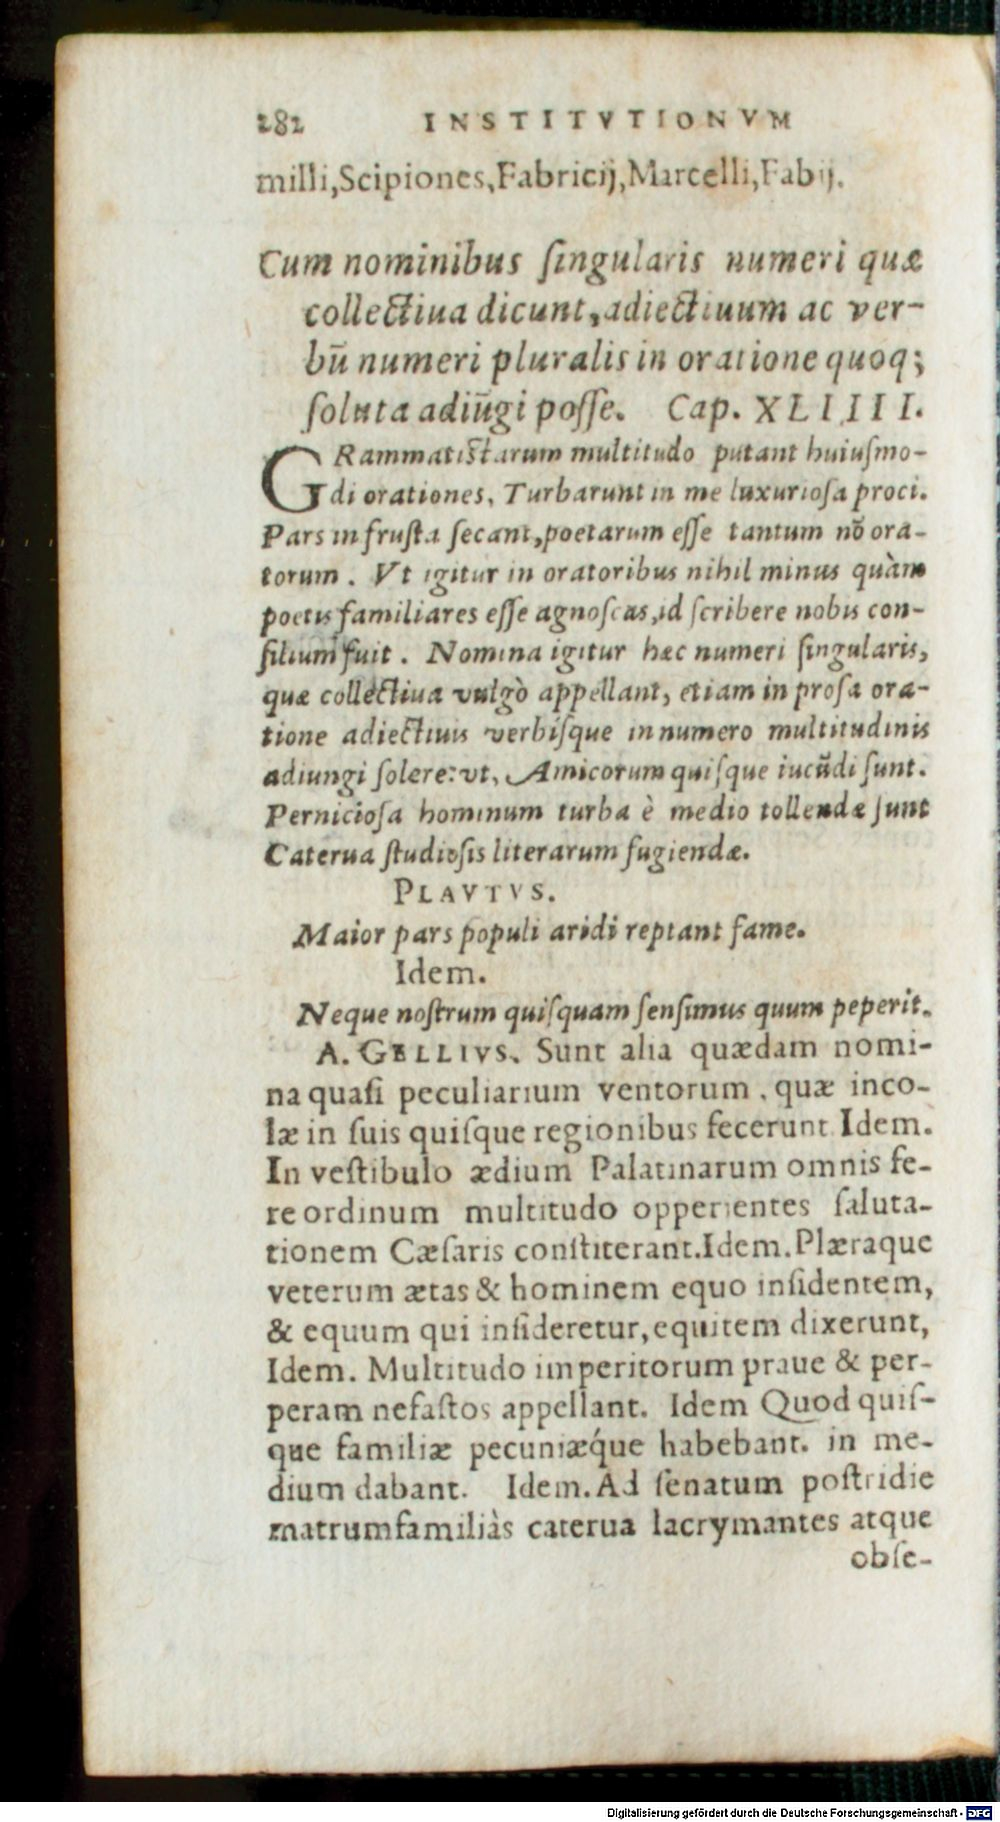 282 INSTITVTIONVM
milli,Scipiones,Fabricij,Marcelli,Fabij.
Cum nominibus ſingularis numeri quæ
collectiua dicunt,adiectiuum ac ver-
bū numeri pluralis in oratione quoq;
ſoluta adiūgi poſſe. Cap. XLIIII.
GRammatistarum multitudo putant huiuſmo-
di orationes, Turbarunt in me luxurioſa proci.
Pars in fruſta ſecant,poetarum eſſe tantum nō ora-
torum. Vt igitur in oratoribus nihil minus quàm
poetis familiares eſſe agnoſcas,id ſcribere nobis con-
ſilium fuit. Nomina igitur hæc numeri ſingularis,
quæ collectiua vulgò appellant, etiam in proſa ora-
tione adiectiuis verbíſque in numero multitudinis
adiungi ſolere: vt, Amicorum quiſque iucūdi ſunt.
Pernicioſa hominum turba è medio tollendæ ſunt
Caterua ſtudioſis literarum fugiendæ.
PLAVTVS.
Maior pars populi aridi reptant fame.
Idem.
Neque noſtrum quiſquam ſenſimus quum peperit.
A. GELLIVS. Sunt alia quædam nomi-
na quaſi peculiarium ventorum, quæ inco-
læ in ſuis quiſque regionibus fecerunt Idem.
In veſtibulo ædium Palatinarum omnis fe-
re ordinum multitudo opperientes ſaluta-
tionem Cæſaris conſtiterant.Idem.Plæraque
veterum ætas & hominem equo inſidentem,
& equum qui inſideretur,equitem dixerunt,
Idem. Multitudo imperitorum praue & per-
peram nefaſtos appellant. Idem Quod quiſ-
que familiæ pecuniæq́ue habebant. in me-
dium dabant. Idem. Ad ſenatum poſtridie
matrumfamiliàs caterua lacrymantes atque
obſe-
Digitalisierung gefördert durch die Deutsche Forschungsgemeinschaft - DFG